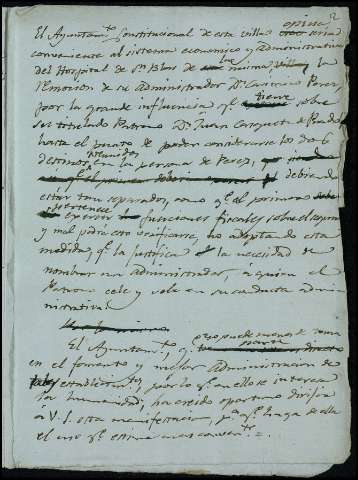 opina
El Ayuntam.to Constitucional de esta villa
conveniente al sistema economico y administrativo
del Hospital de Sn Blas de la misma, la
remocion de su Administrador Dn Casimiro Perez,
por la grande influencia q.e tiene sobre
su titulado Patrono Dn Juan de Prado
hasta el punto de poder considerarse los dos
destinos reunidos en la persona de Perez, debiendo
estar tan separados, como q.e al primero
pertenece
ejercer funciones fiscales sobre el segundo
y mal podrá esto verificarse, no adoptada esta
medida, q.e la justifica la necesidad de
nombrar un Administrador, a quien el
Patrono cele y vele en su conducta admi-
nistrativa.
El Ayuntam.to, q.e no puede menos de tomar
parte
en el fomento y mejor Administracion de
tales establecimientos, por lo q.e en ello se interesa
la humanidad, ha creido oportuno dirigir
a V.S. esta manifestacion, p.a q.e haga de ella
el uso q.e estime mas conven.te